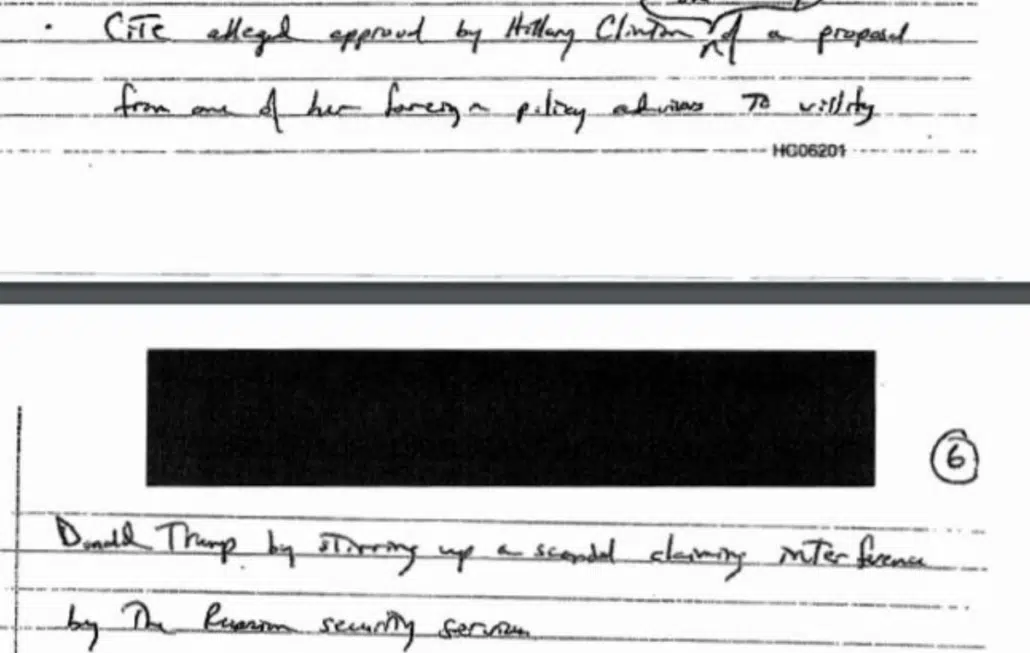 • CITE alleged approval by Hillary Clinton of a proposal
from one of her foreign policy advisors to vilify
HC06201
6
Donald Trump by stirring up a scandal claiming interference
by the Russian security services